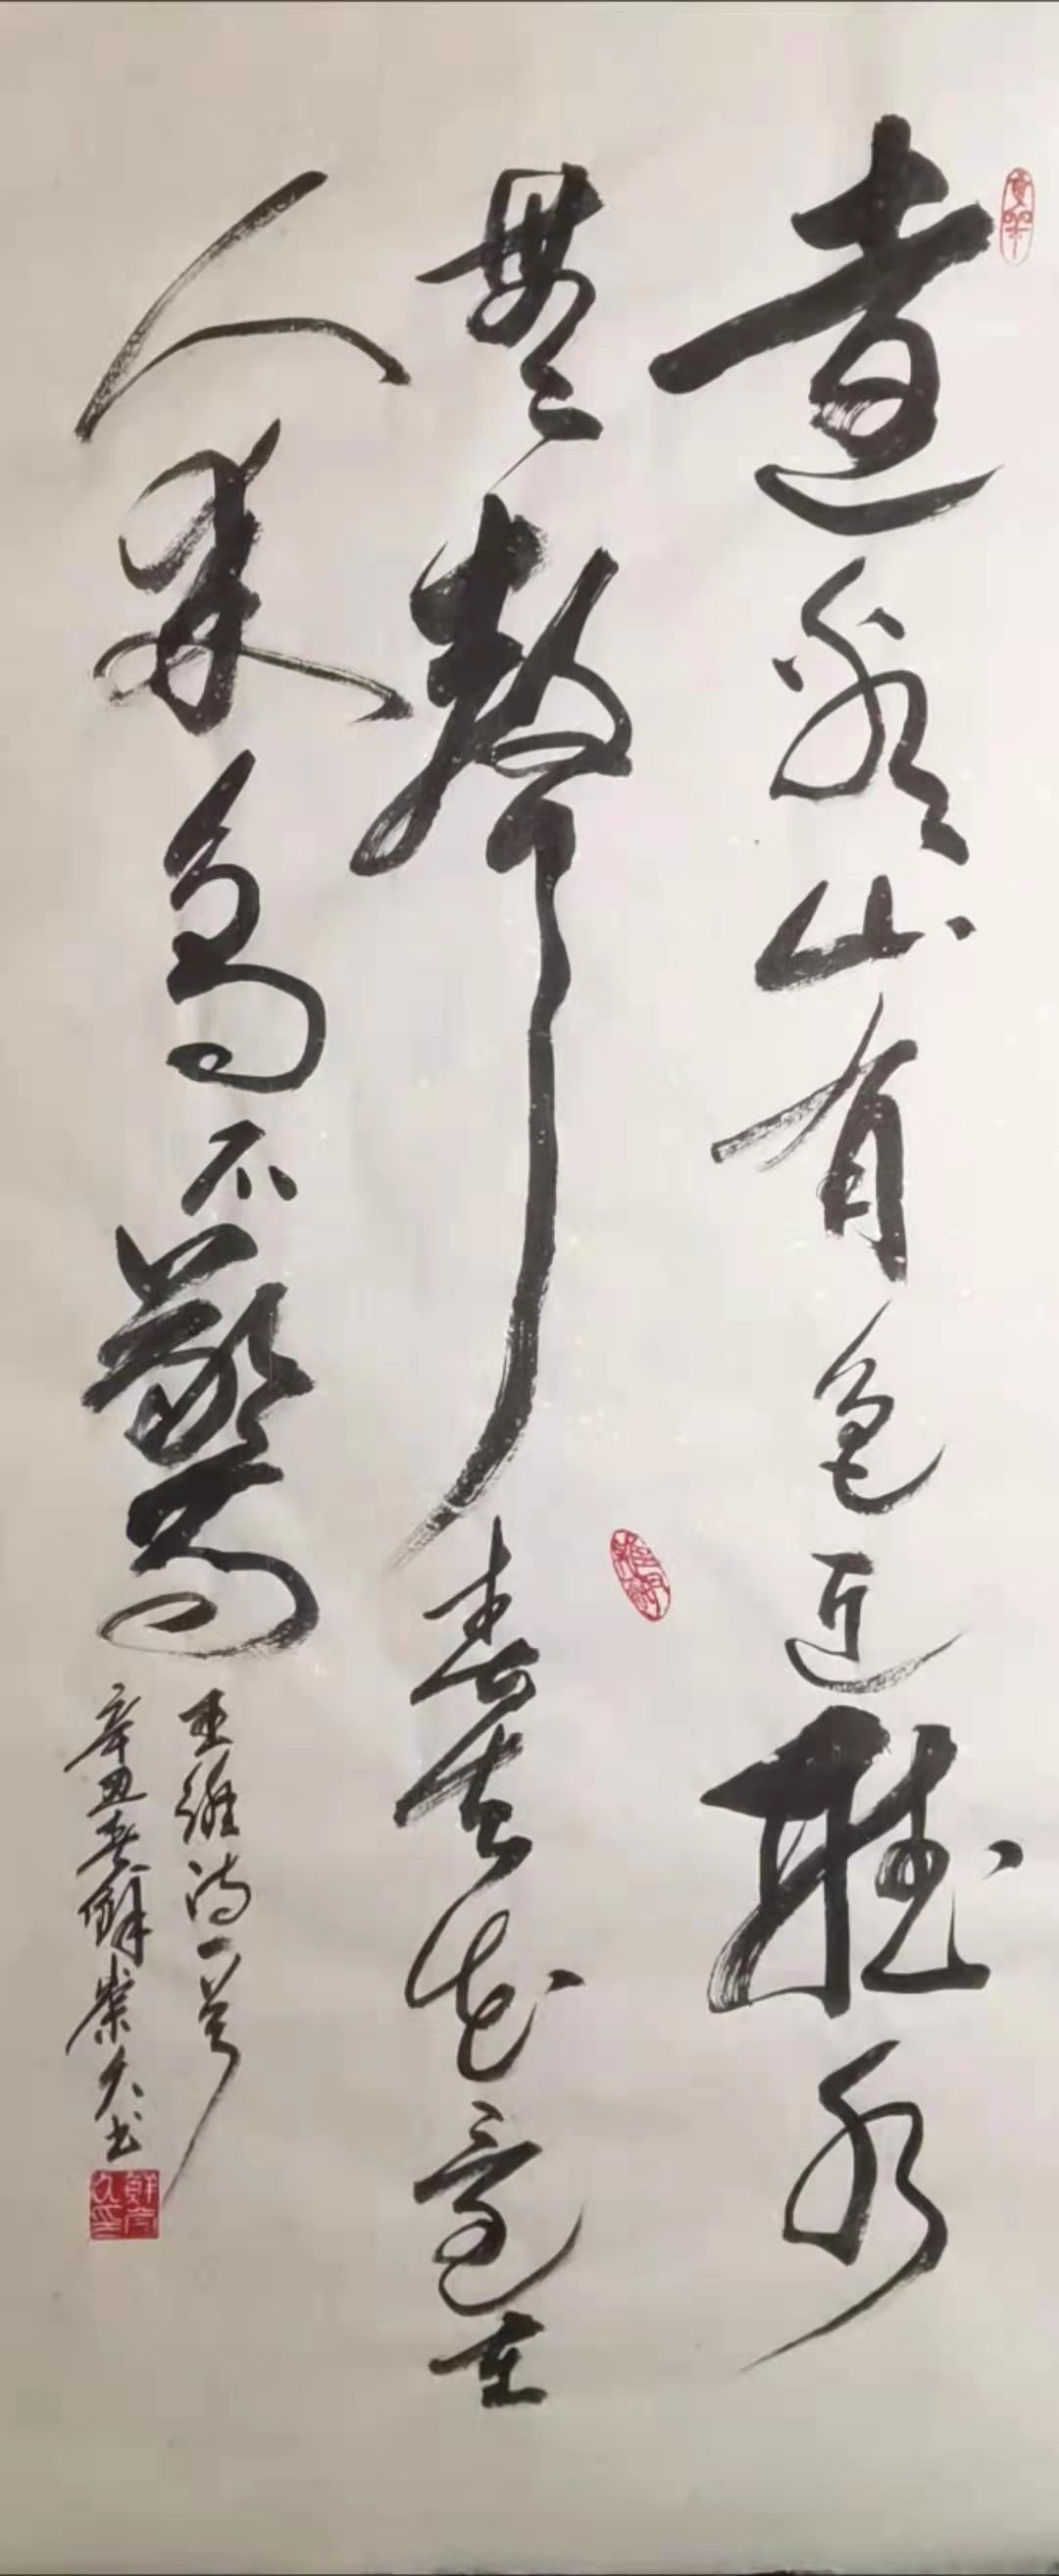 遠看山有色近聽水
無聲春去花還在
人來鳥不驚
王維詩一首
辛丑春 久书